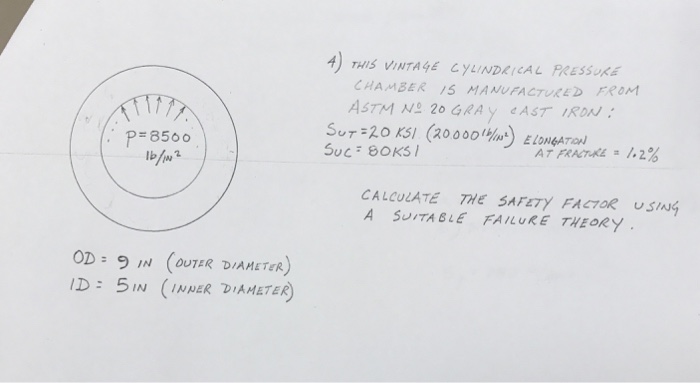 4) THIS VINTAGE CYLINDRICAL PRESSURE
CHAMBER IS MANUFACTURED FROM
ASTM Nº 20 GRAY CAST IRON:
SUT = 20 KSI (20000 lb/in²) ELONGATON
SUC = 80KSI AT FRACTURE = 1.2%
P=8500
lb/in²
CALCULATE THE SAFETY FACTOR USING
A SUITABLE FAILURE THEORY.
OD = 9 IN (OUTER DIAMETER)
ID = 5 IN (INNER DIAMETER)